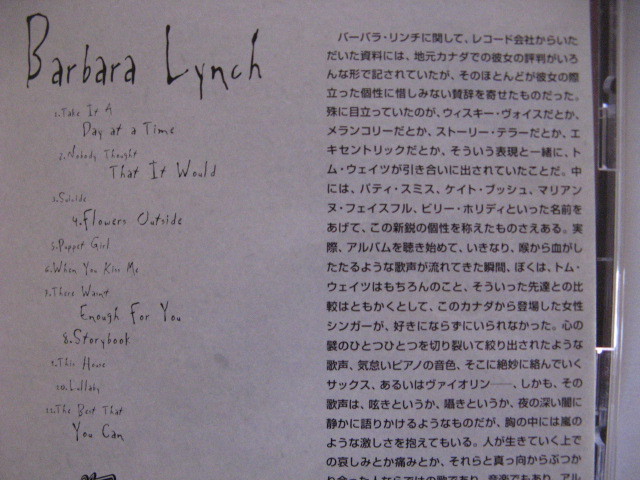 Barbara Lynch
1.Take It A
Day at a Time
2.Nobody Thought
That It Would
3.Suicide
4.Flowers Outside
5.Puppet Girl
6.When You Kiss Me
7.There Wasn't
Enough For You
8.Storybook
9.This House
10.Lullaby
11.The Best That
You Can
バーバラ・リンチに関して、レコード会社からいた
だいた資料には、地元カナダでの彼女の評判がいろ
んな形で記されていたが、そのほとんどが彼女の際
立った個性に惜しみない賛辞を寄せたものだった。
殊に目立っていたのが、ウィスキー・ヴォイスだとか、
メランコリーだとか、ストーリー・テラーだとか、エ
キセントリックだとか、そういう表現と一緒に、ト
ム・ウェイツが引き合いに出されていたことだ。中
には、パティ・スミス、ケイト・ブッシュ、マリアン
ヌ・フェイスフル、ビリー・ホリディといった名前を
あげて、この新鋭の個性を称えたものさえある。実
際、アルバムを聴き始めて、いきなり、喉から血がし
たたるような歌声が流れてきた瞬間、ぼくは、トム・
ウェイツはもちろんのこと、そういった先達との比
較はともかくとして、このカナダから登場した女性
シンガーが、好きにならずにいられなかった。心の
襞のひとつひとつを切り裂いて絞り出されたような
歌声、気怠いピアノの音色、そこに絶妙に絡んでいく
サックス、あるいはヴァイオリン──、しかも、その
歌声は、呟きというか、囁きというか、夜の深い闇に
静かに語りかけるようなものだが、胸の中には嵐の
ような激しさを抱えてもいる。人が生きていく上で
の哀しみとか痛みとか、それらと真っ向からぶつか
り合った人ならではの歌であり、音楽でもあり、アル